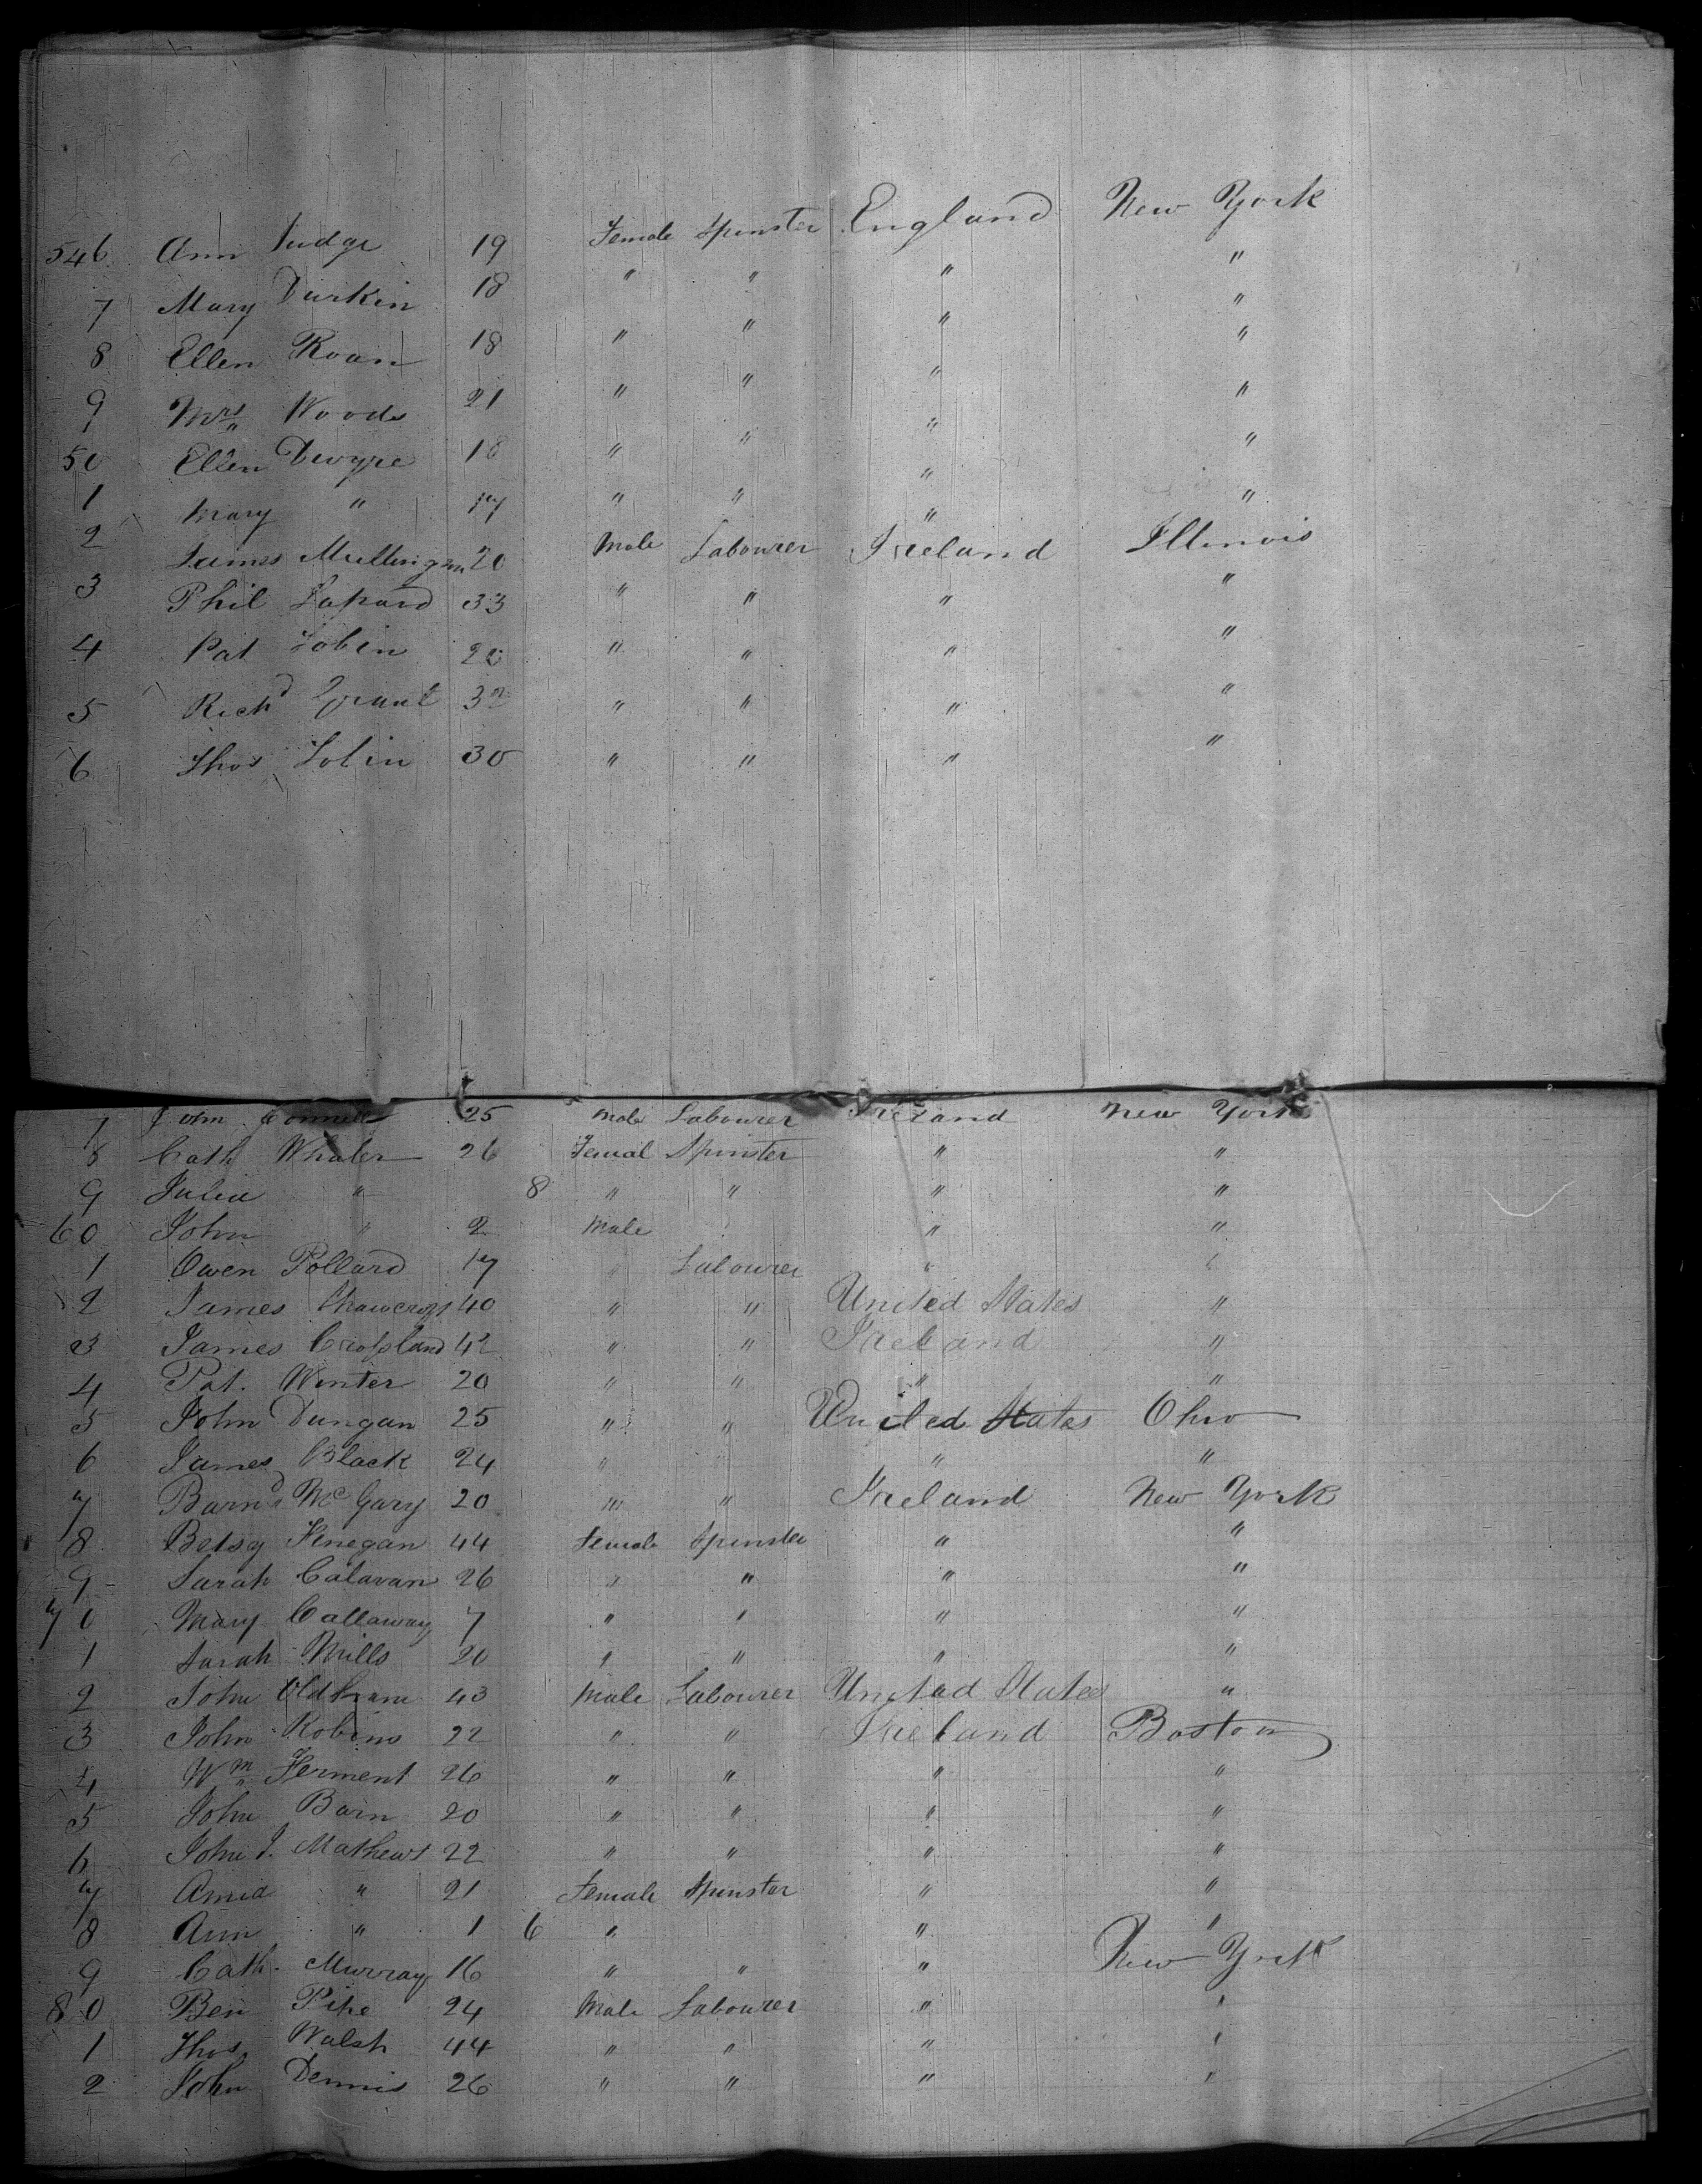 546 Ann Judge 19 Female Spinster England New York
7 Mary Durkin 18 " " " "
8 Ellen Roan 18 " " " "
9 Mrs Woods 21 " " " "
50 Ellen Dwyre 18 " " " "
1 Mary " 17 " " " "
2 James Mullingan 20 Male Labourer Ireland Illinois
3 Phil 33 " " " "
4 Pat Tobin 20 " " " "
5 Richd Grant 32 " " " "
6 Thos Tobin 30 " " " "
7 John Connell 25 Male Labourer Ireland New York
8 Cath Whalen 26 Femal Spinster " "
9 Julia " 8 " " " "
60 John " 2 Male " "
1 Owen Pollard 17 " Labourer " "
2 James Shawcross 40 " " United States "
3 James Crossland 42 " " Ireland "
4 Pat. Winter 20 " " " "
5 John Dungan 25 " " United States Ohio
6 James Black 24 " " "
7 Barnd McGary 20 " " Ireland New York
8 Betsy Finegan 44 Female Spinster " "
9 Sarah Calavan 26 " " " "
70 Mary Callaway 7 " " " "
1 Sarah Mills 20 " " " "
2 John Oldham 43 Male Labourer United States "
3 John Robins 22 " " Ireland Boston
4 Wm Ferment 26 " " " "
5 John Barn 20 " " " "
6 John J. Mathews 22 " " " "
7 " 21 Female Spinster " "
8 Ann " 1 6 " " "
9 Cath. Murray 16 " " " New York
80 Ben Pike 24 Male Labourer " "
1 Thos Walsh 44 " " " "
2 John Dennis 26 " " " "